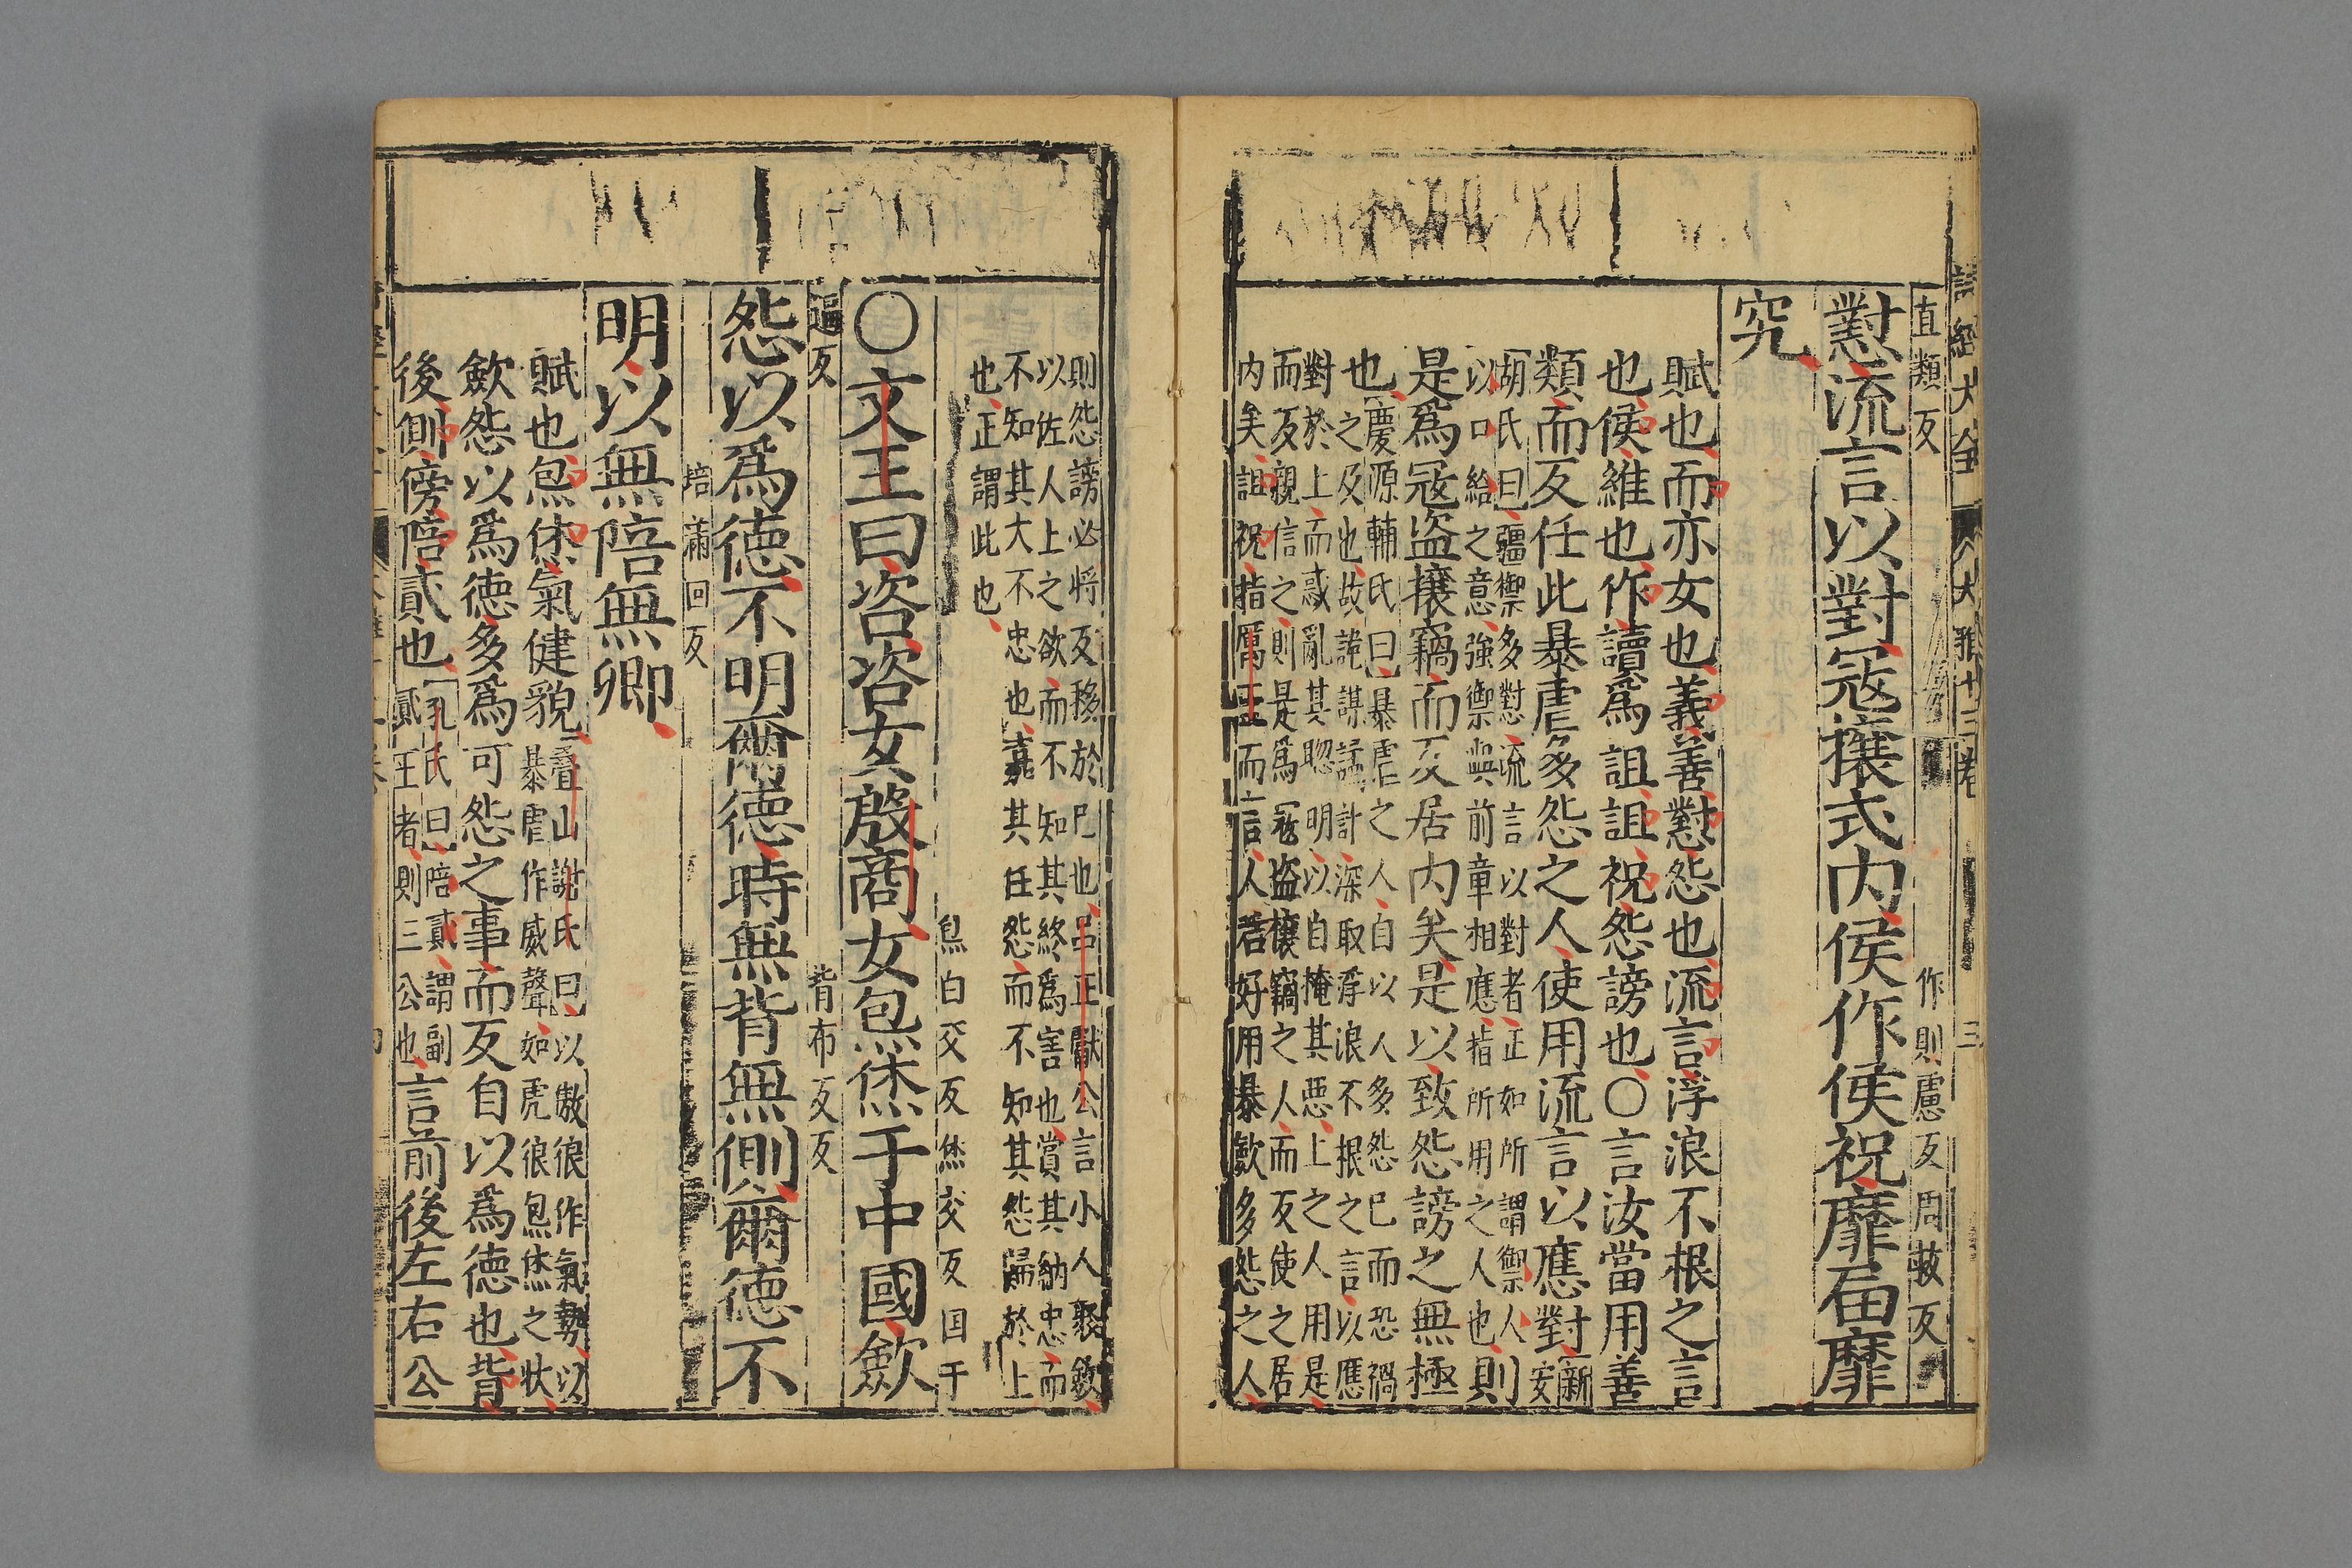 詩經大全 大雅十三卷 三
直類反 作則慮反 周救反
懟流言以對寇攘式内侯作侯祝靡届靡
究
賦也而亦女也義善懟怨也流言浮浪不根之言
也侯維也作讀爲詛詛祝怨謗也○言汝當用善
類而反任此暴虐多怨之人使用流言以應對新安
胡氏曰疆禦多懟流言以對者正如所謂禦人
以口給之意強禦與前章相應指所用之人也則
是爲寇盗攘竊而反居内矣是以致怨謗之無極
也慶源輔氏曰暴虐之人自以人多怨已而恐禍
之及也故詭謀譎計深取浮浪不根之言以應
對於上而惑亂其聡明以自掩其惡上之人用是
而反親信之則是爲寇盗攘竊之人而反使之居
内矣詛祝指厲王而言人君好用暴歛多怨之人
則怨謗必將反移於已也呂正獻公言小人聚歛
以佐人上之欲而不知其終爲害也賞其納忠而
不知其大不忠也嘉其任怨而不知其怨歸於上
也正謂此也
炰白交反烋交反国于
○文王曰咨咨女殷商女炰烋于中國歛
逼反 背布反反
怨以爲徳不明爾徳時無背無側爾徳不
培蒲回反
明以無陪無卿
賦也炰烋氣健貌疊山謝氏曰以傲很作氣勢以
暴虐作威聲如虎很炰烋之状
歛怨以爲徳多爲可怨之事而反自以爲徳也背
後側傍陪貳也孔氏曰陪貳謂副
貳王者則三公也言前後左右公